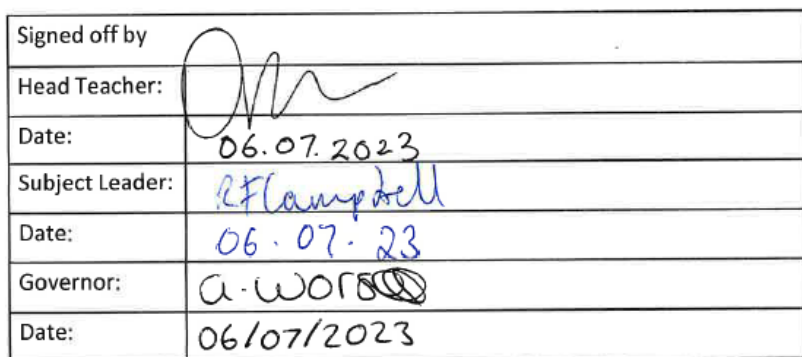 Signed off by
Head Teacher:
Date: 06.07.2023
Subject Leader: RFCampbell
Date: 06.07.23
Governor:
Date: 06/07/2023